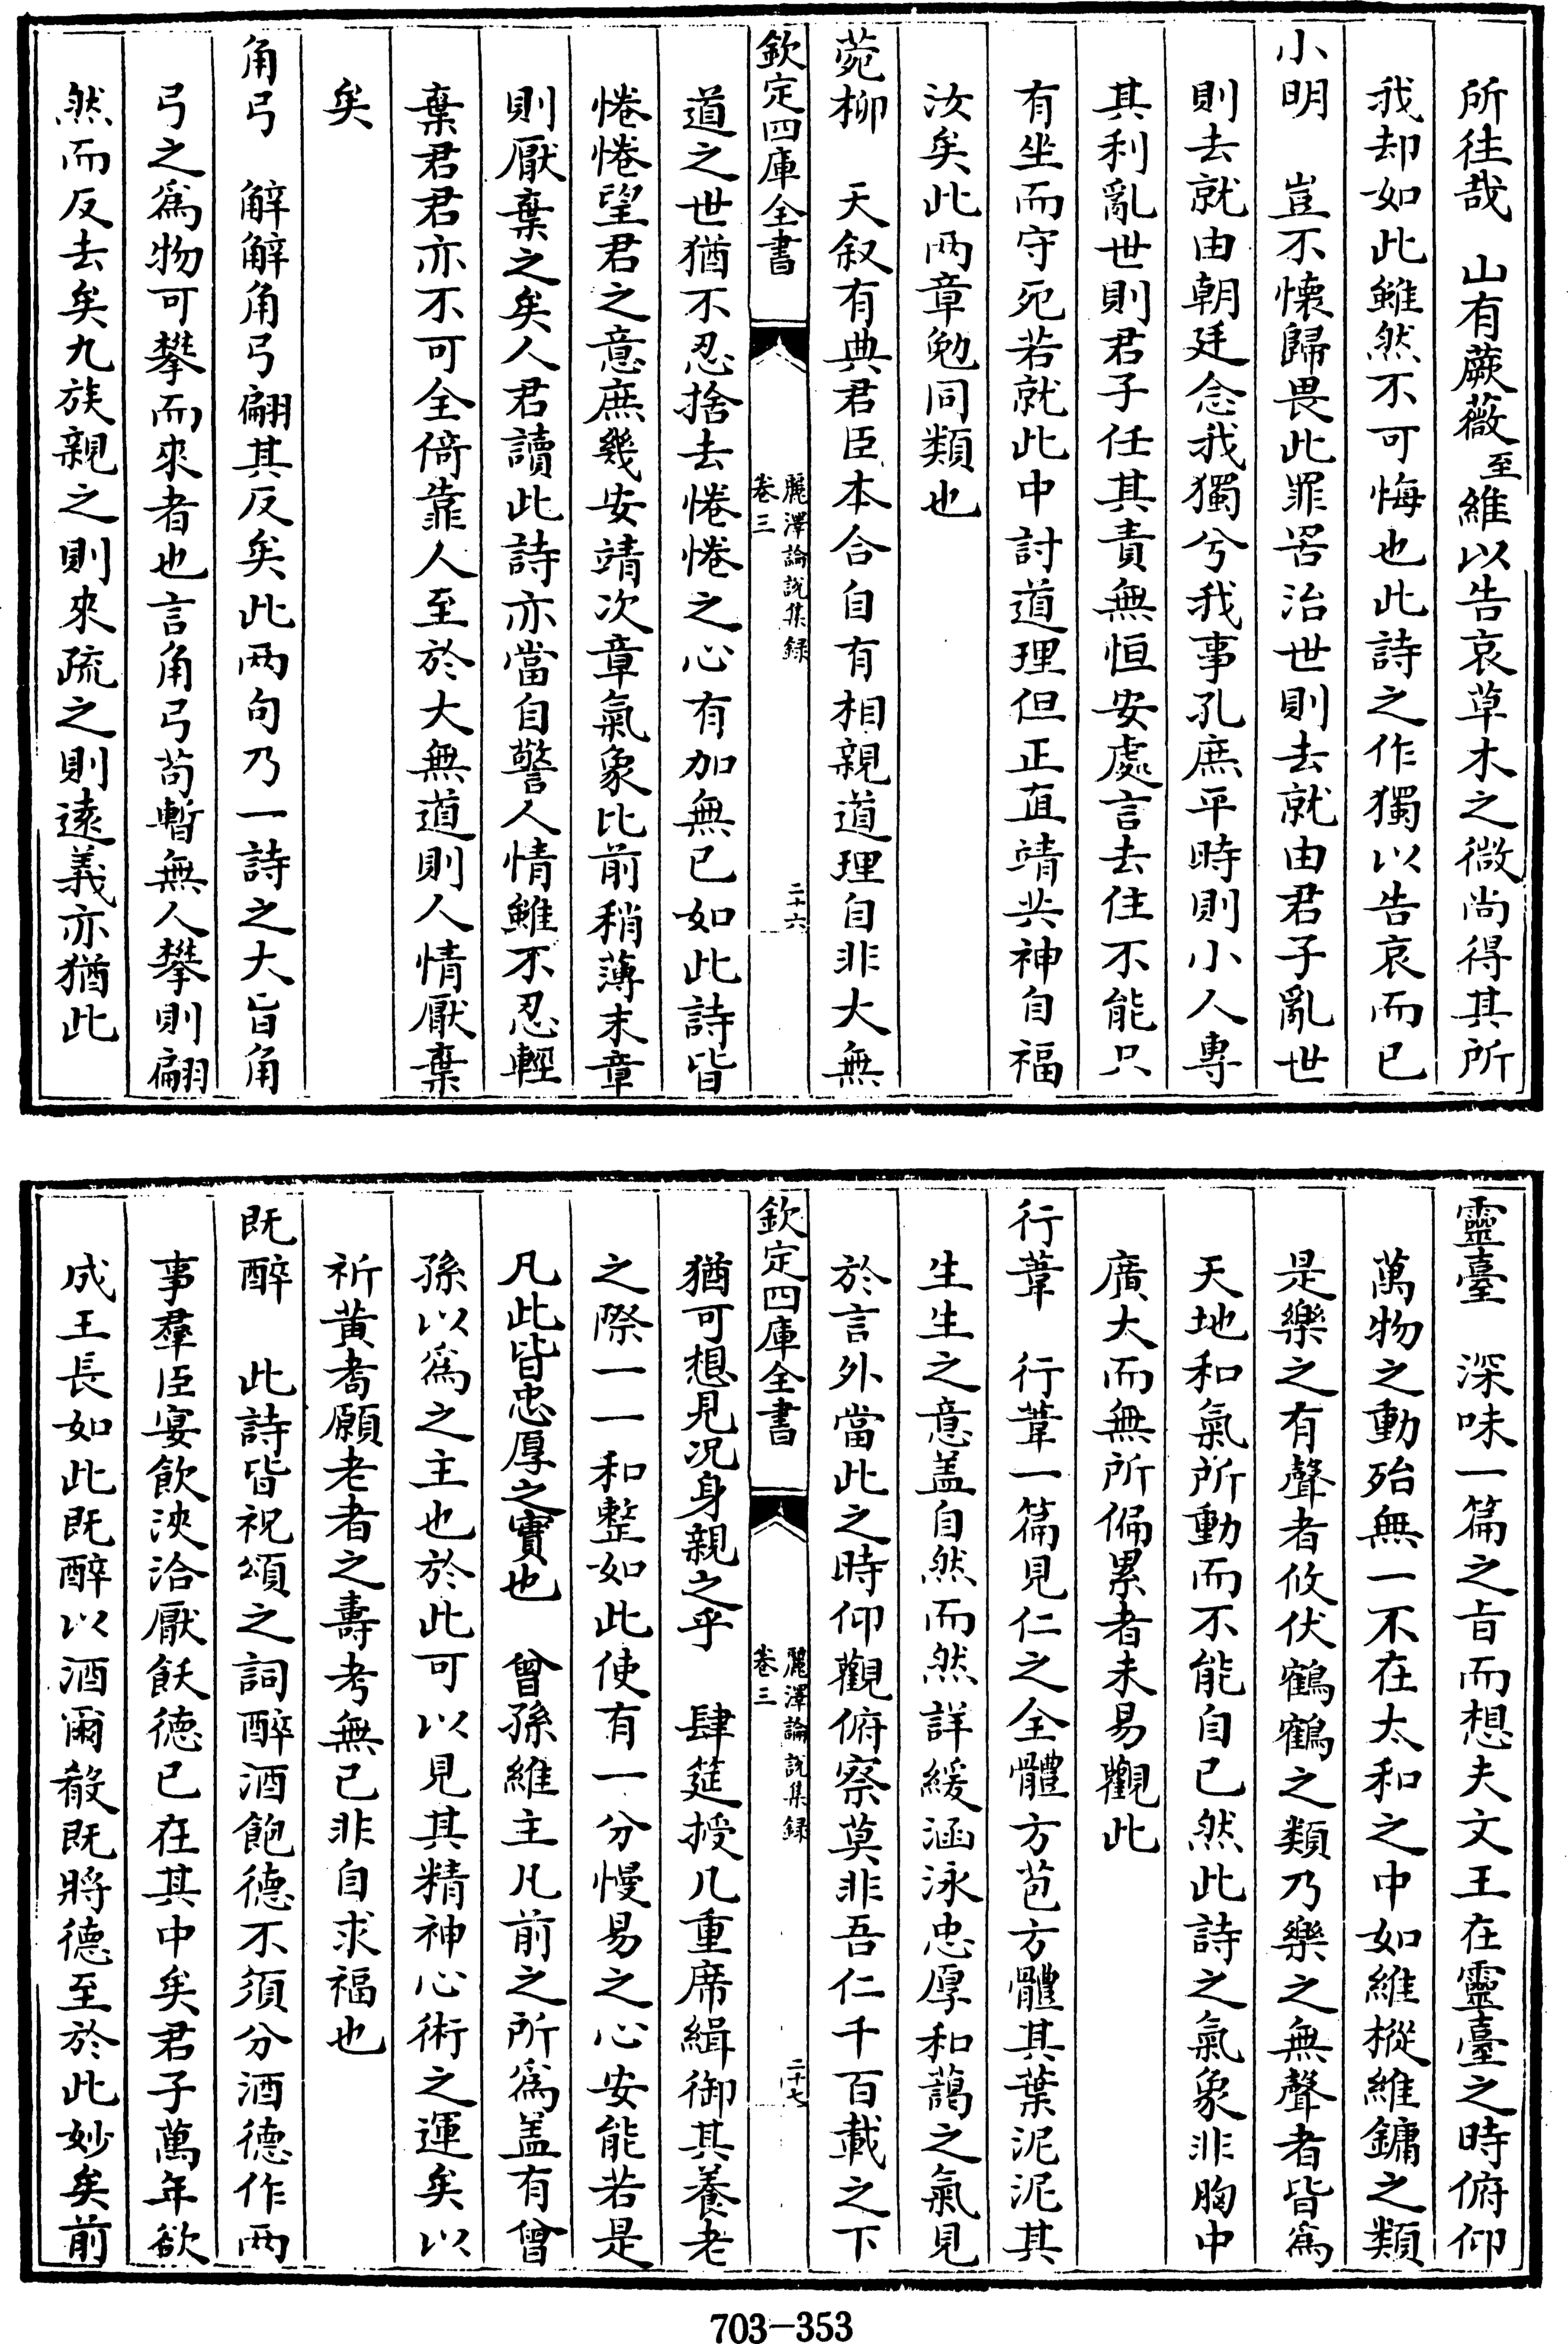 所往哉　山有蕨薇至維以告哀草木之微尚得其所
我却如此雖然不可悔也此詩之作獨以告哀而已
小明　豈不懐歸畏此罪罟治世則去就由君子亂世
則去就由朝廷念我獨兮我事孔庶平時則小人專
其利亂世則君子任其責無恒安處言去住不能只
有坐而守死若就此中討道理但正直靖共神自福
汝矣此两章勉同類也
菀柳　天叙有典君臣本合自有相親道理自非大無
欽定四庫全書
麗澤論說集録
卷三
二十六
道之世猶不忍捨去惓惓之心有加無已如此詩皆
惓惓望君之意庶幾安靖次章氣象比前稍薄末章
則厭棄之矣人君讀此詩亦當自警人情雖不忍輕
棄君君亦不可全倚靠人至於大無道則人情厭棄
矣
角弓　觧觧角弓翩其反矣此两句乃一詩之大旨角
弓之爲物可攀而來者也言角弓苟暫無人攀則翩
然而反去矣九族親之則來疏之則逺義亦猶此
靈臺　深味一篇之旨而想夫文王在靈臺之時俯仰
萬物之動殆無一不在太和之中如維樅維鏞之類
是樂之有聲者攸伏鶴鶴之類乃樂之無聲者皆爲
天地和氣所動而不能自已然此詩之氣象非胸中
廣大而無所偏累者未易觀此
行葦　行葦一篇見仁之全體方苞方體其葉泥泥其
生生之意盖自然而然詳緩涵泳忠厚和藹之氣見
於言外當此之時仰觀俯察莫非吾仁千百載之下
欽定四庫全書
麗澤論說集録
卷三
二十七
猶可想見况身親之乎　肆筵授几重席緝御其養老
之際一一和整如此使有一分慢易之心安能若是
凡此皆忠厚之實也　曾孫維主凡前之所爲盖有曾
孫以爲之主也於此可以見其精神心術之運矣以
祈黄耇願老者之壽考無已非自求福也
既醉　此詩皆祝頌之詞醉酒飽德不須分酒德作两
事羣臣宴飲浹洽厭飫德已在其中矣君子萬年欲
成王長如此既醉以酒爾殽既將德至於此妙矣前
703-353